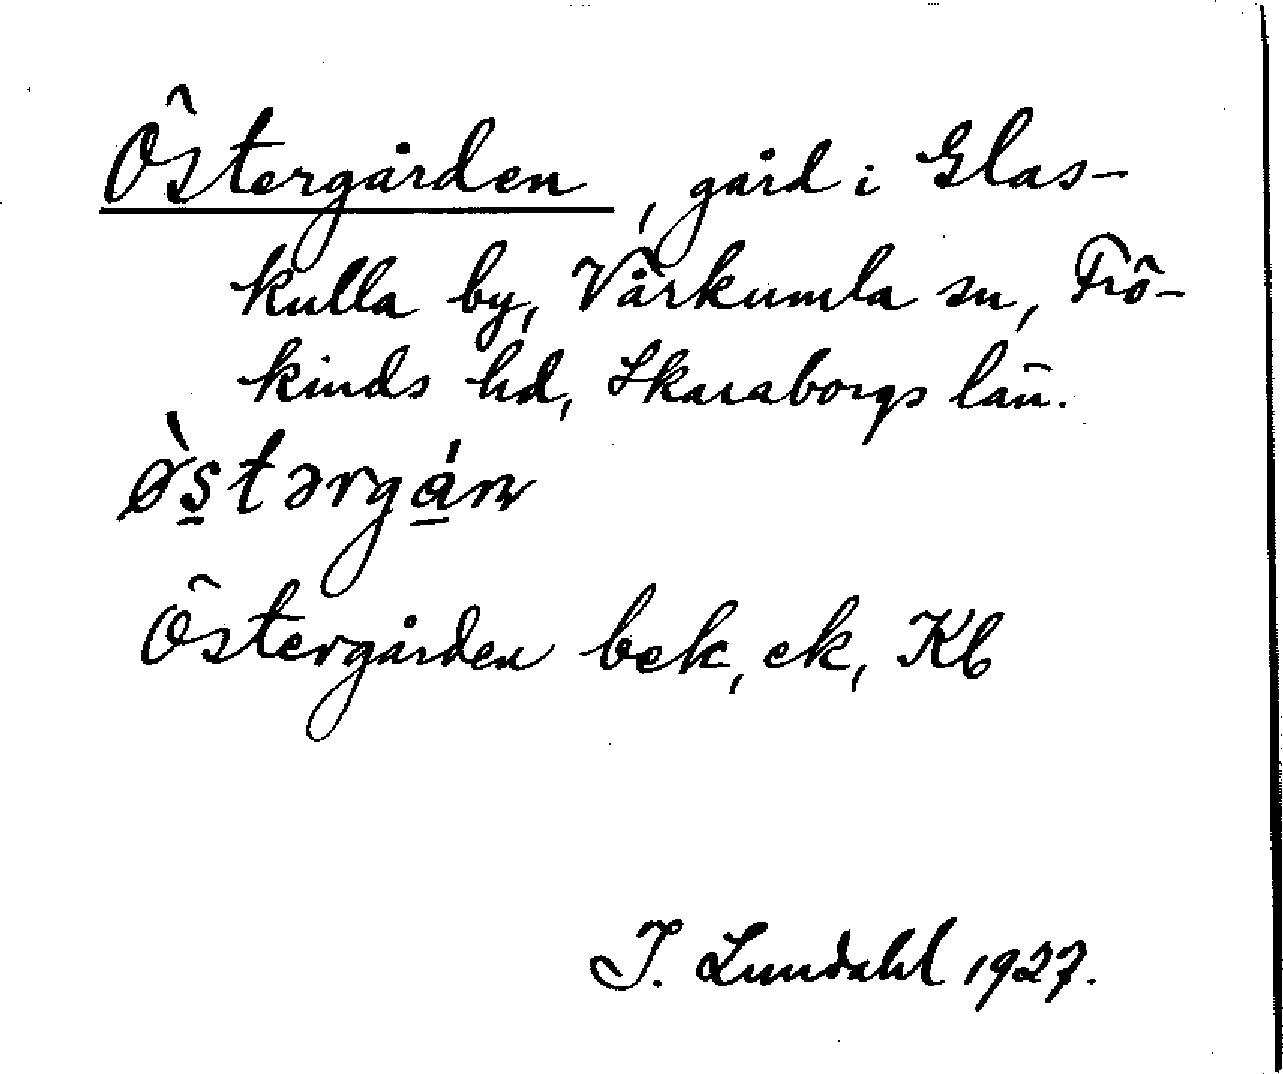 Östergården, gård i Glas-
kulla by, Vårkumla sn, Frö-
kinds hd, Skaraborgs län.
ø̀s̠tərgá̠n
Östergården bek, ek, Kb
I. Lundahl 1927.